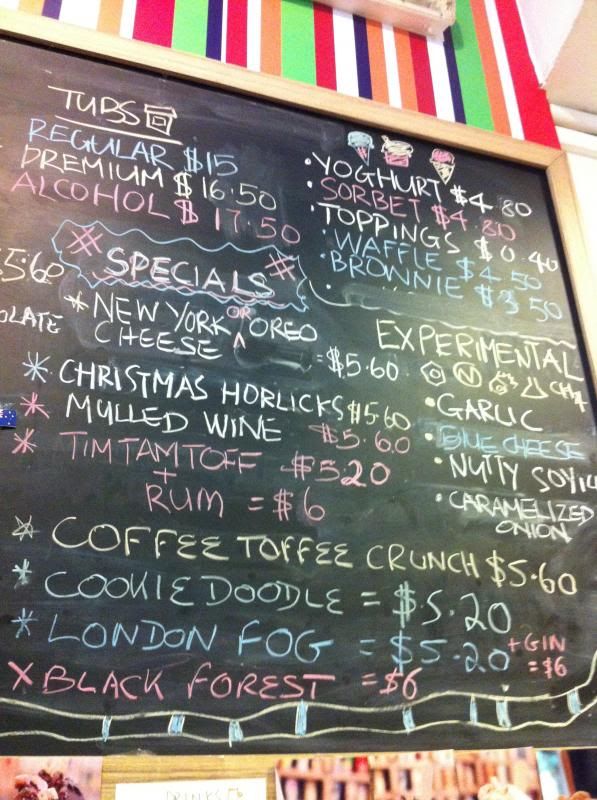 TUBS
REGULAR $15
PREMIUM $16.50
ALCOHOL $17.50
• YOGHURT $4.80
• SORBET $4.80
• TOPPINGS $0.40
• WAFFLE $4.50
• BROWNIE $3.50
SPECIALS
5.60
OLATE
* NEW YORK OR OREO
CHEESE
= $5.60
* CHRISTMAS HORLICKS $5.60
* MULLED WINE $5.60
* TIMTAMTOFF $5.20
+
RUM = $6
EXPERIMENTAL
• GARLIC
• BLUE CHEESE
• NUTTY
• CARAMELIZED
ONION
* COFFEE TOFFEE CRUNCH $5.60
* COOKIE DOODLE = $5.20
* LONDON FOG = $5.20 + GIN
= $6
X BLACK FOREST = $6
DRINKS